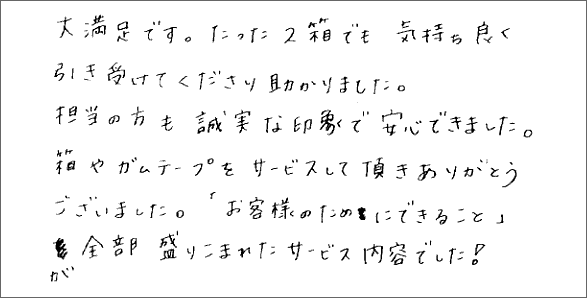 大満足です。たった2箱でも 気持ち良く
引き受けてくださり助かりました。
担当の方も 誠実な印象で 安心できました。
箱やガムテープを サービスして頂きありがとう
ございました。「お客様のためにできること」
が 全部 盛りこまれたサービス内容でした!